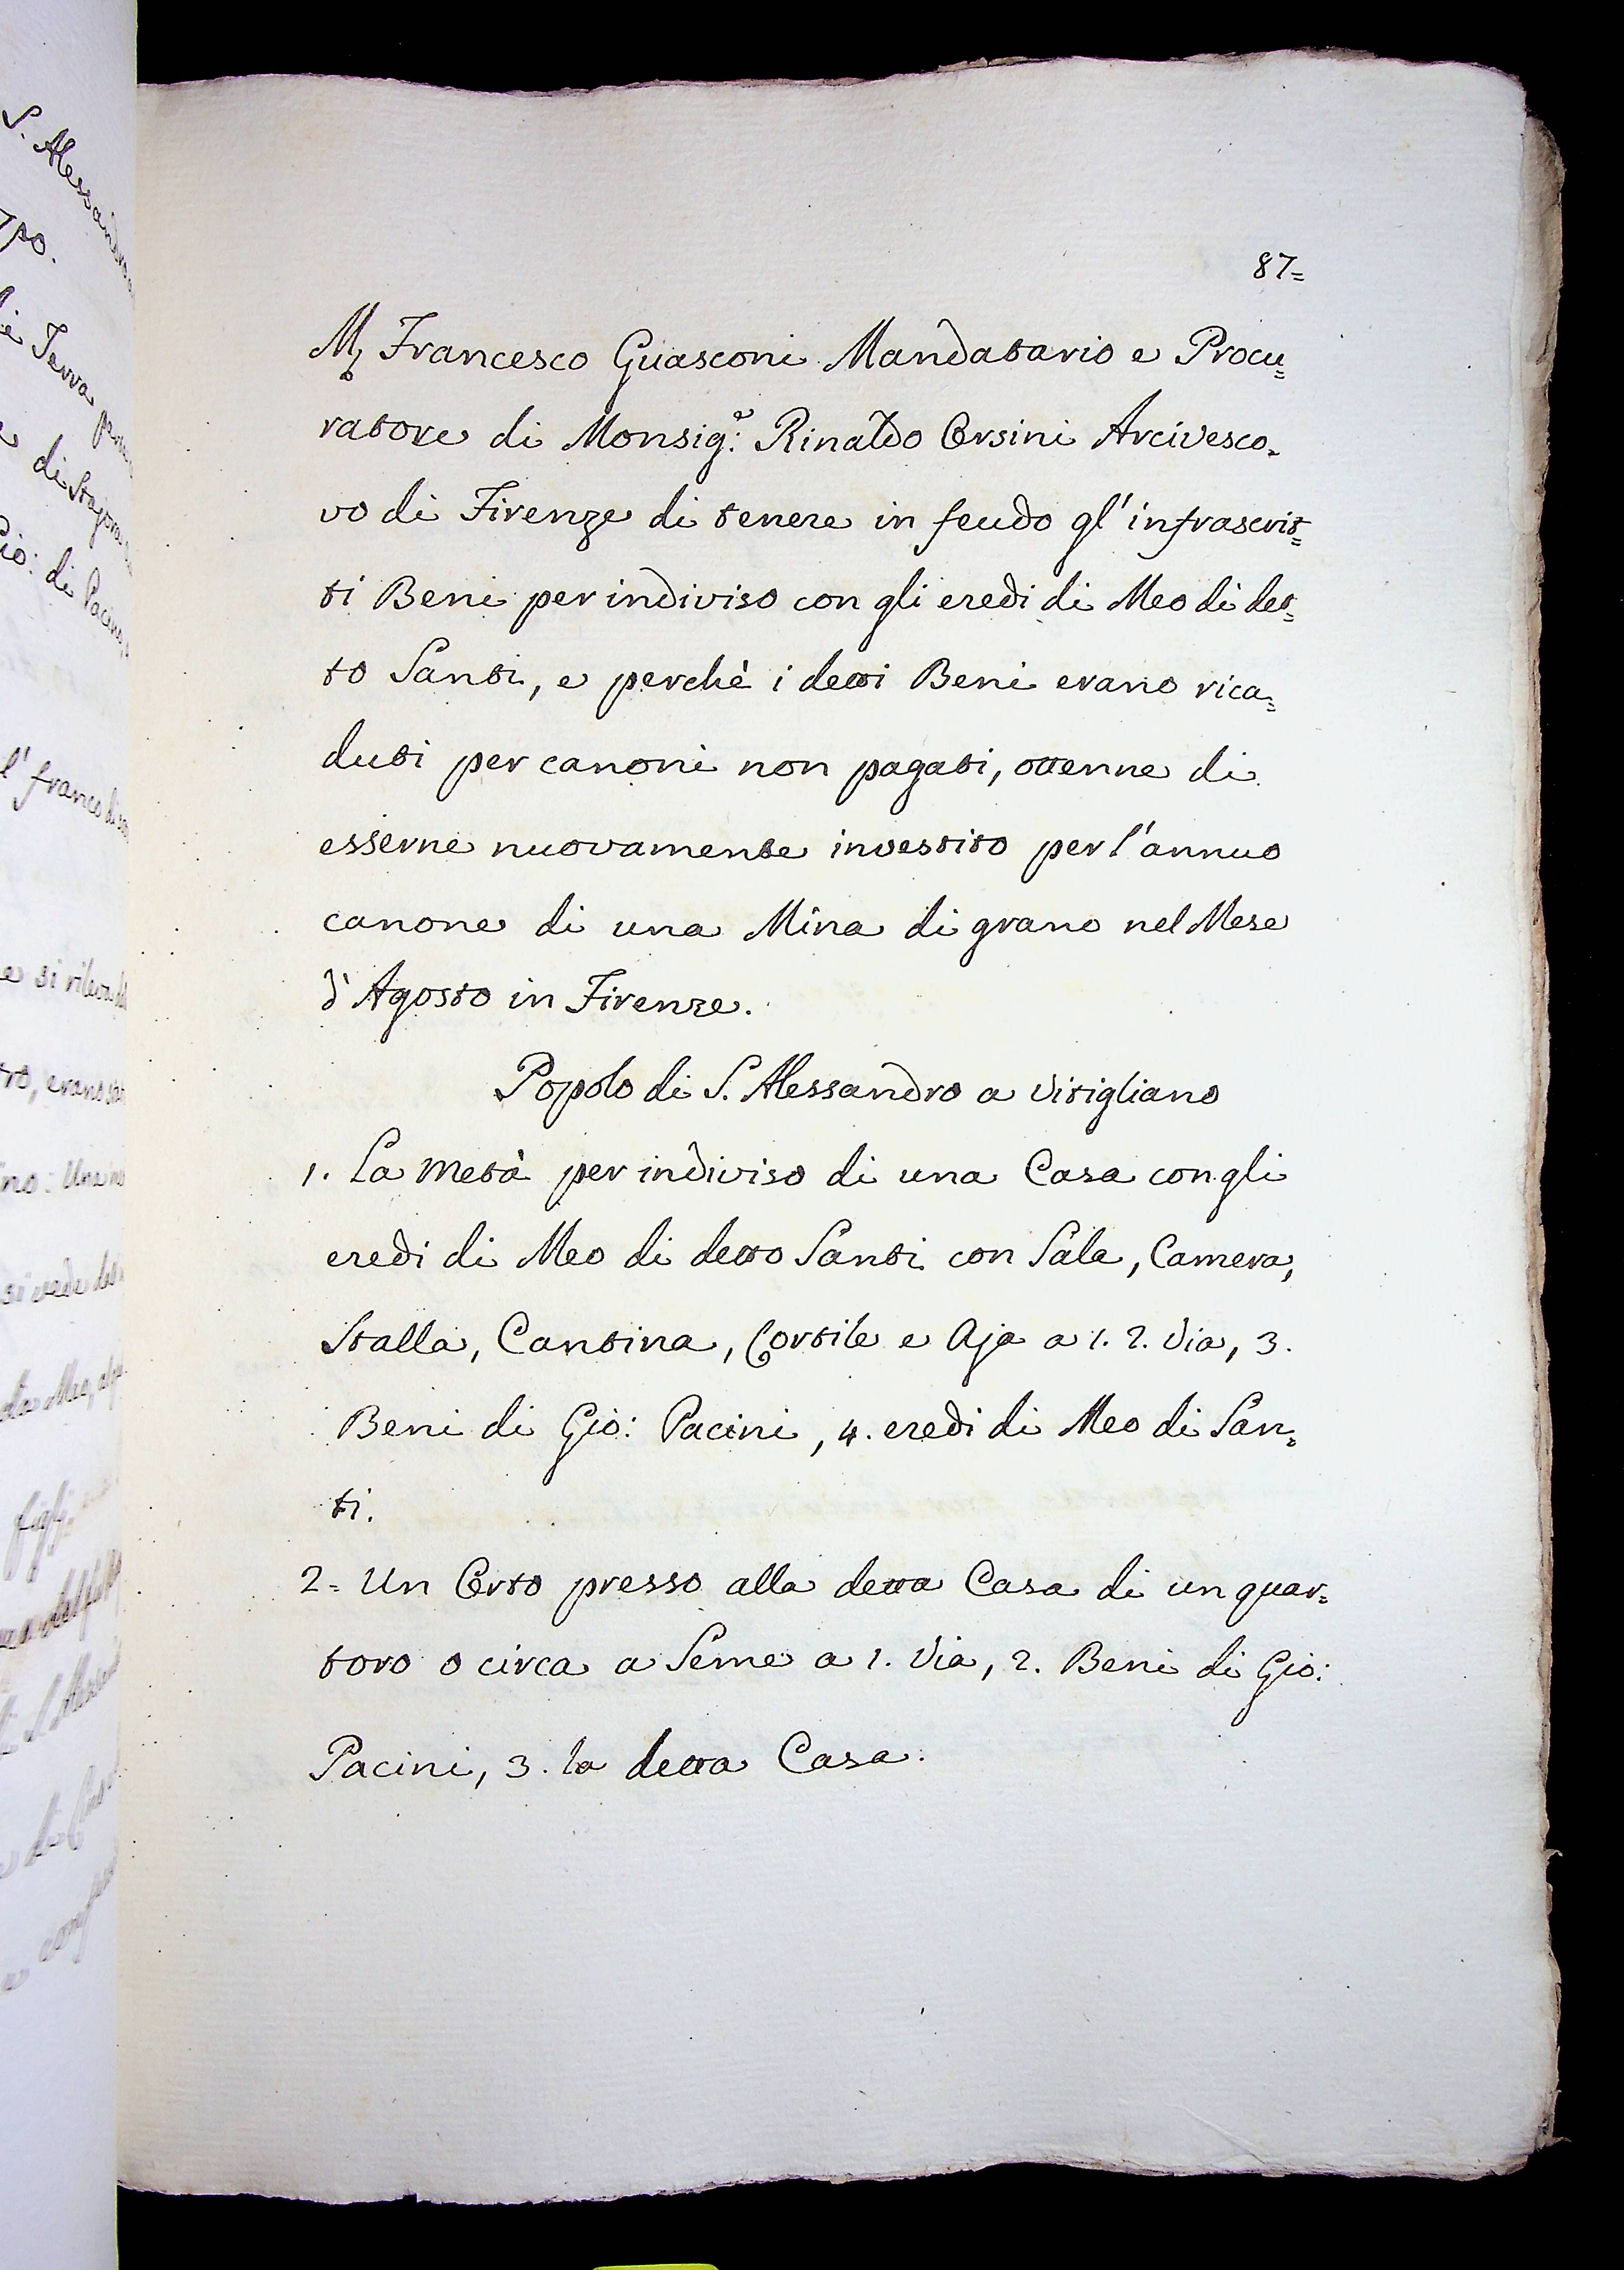 87=
M. Francesco Guasconi Mandatario e Procu=
ratore di Monsig.e Rinaldo Orsini Arcivesco=
vo di Firenze di tenere in feudo gl'infrascrit=
ti Beni per indiviso con gli eredi di Meo di det=
to Santi, e perchè i detti Beni erano rica=
duti per canoni non pagati, ottenne di
esserne nuovamente investito per l'annuo
canone di una Mina di grano nel Mese
d'Agosto in Firenze.
Popolo di S. Alessandro a Vitigliano
1. La metà per indiviso di una Casa con gli
eredi di Meo di detto Santi con Sala, Camera,
Stalla, Cantina, Cortile e Aja a 1. 2. Via, 3.
Beni di Gio: Pacini, 4. eredi di Meo di San=
ti.
2= Un Orto presso alla detta Casa di un quar=
toro o circa a Seme a 1. Via, 2. Beni di Gio:
Pacini, 3. la detta Casa.